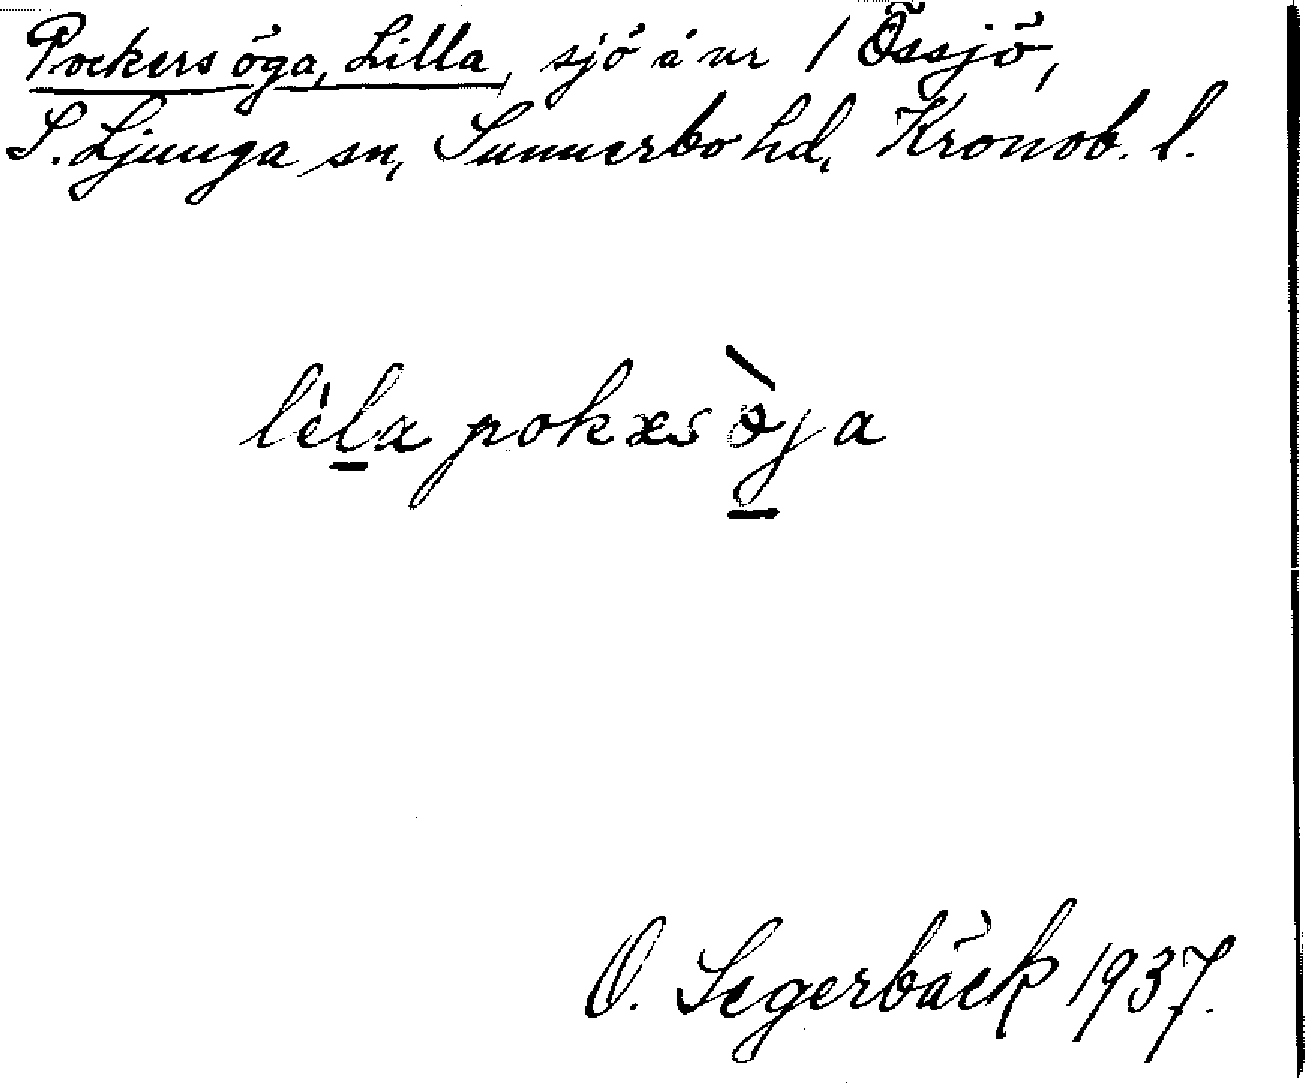 Pockers öga, Lilla, sjö å nr 1 Össjö,
S. Ljunga sn, Sunnerbo hd, Kronob. l.
lèla pokæs ò̱ja
O. Segerbäck 1937.